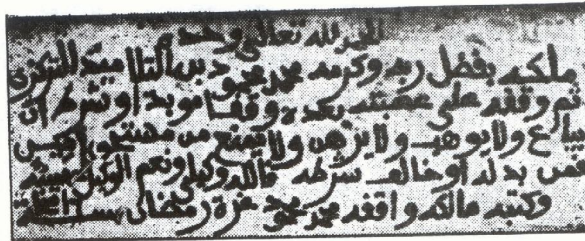 الحمد لله تعالى وحده
ملكه بفضل ربه وكرمه محمد محمود بن التلاميد التركزي
ثم وقفه على عصبته بعده وقفا موبدا وشرط ان
يباع ولا يوهب ولا يرهن ولا يمنع من يستحقه
بدله او خالف شرطه فالله وكيلي ونعم الوكيل
وكتبه مالكه واقفه محمد محمود غرة رمضان سنة